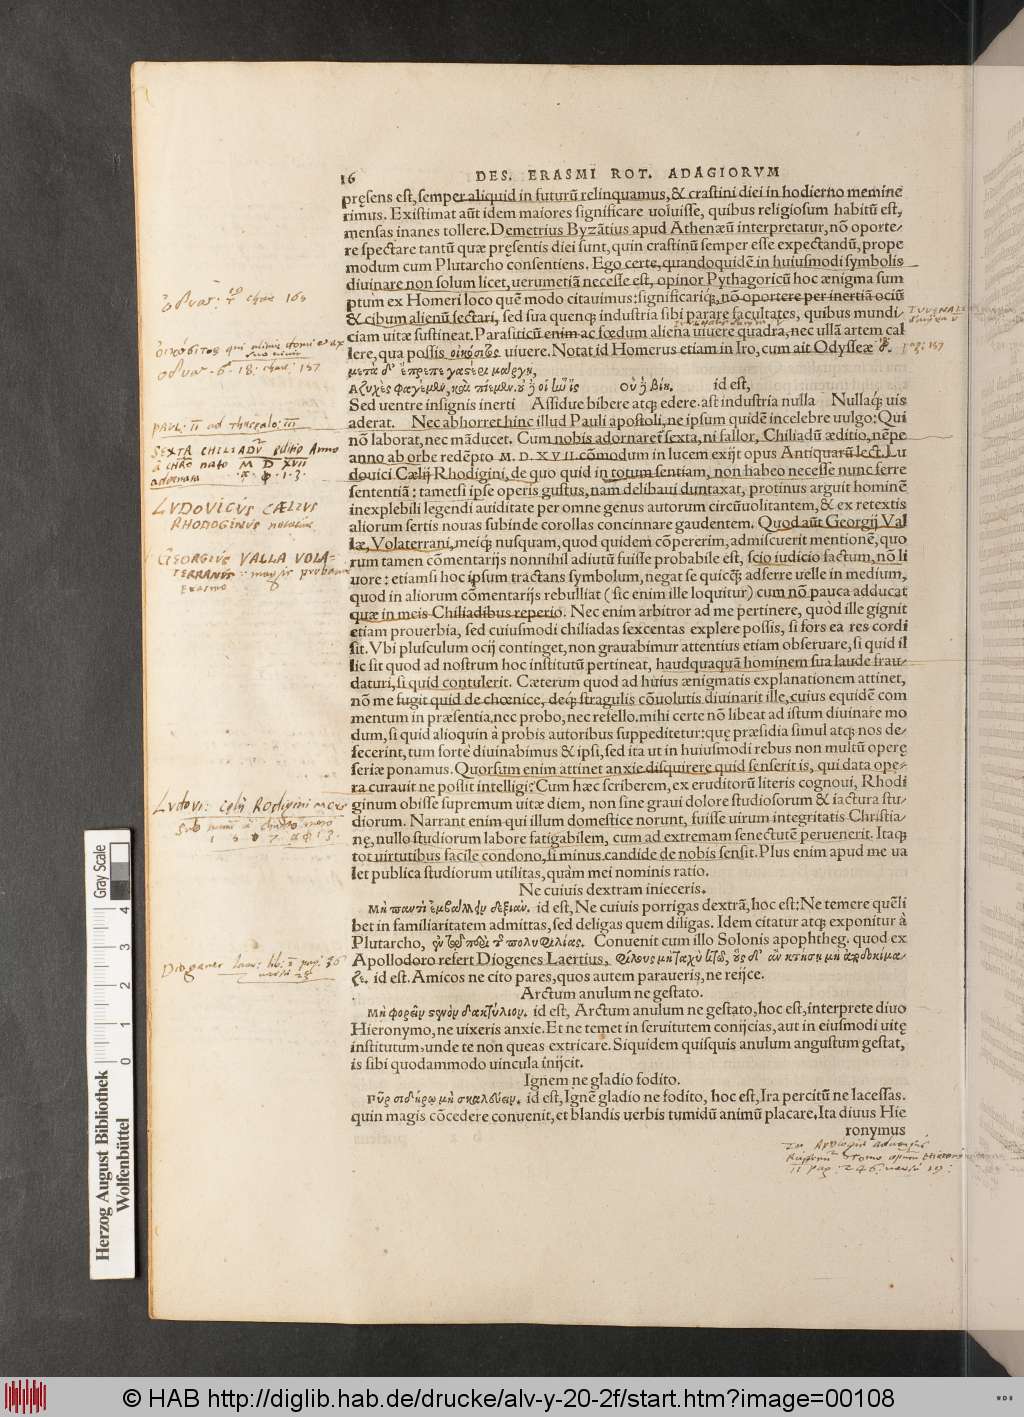 16 DES. ERASMI ROT. ADAGIORVM
pręsens est, semper aliquid in futurũ relinquamus, & crastini diei in hodierno memine
rimus. Existimat aũt idem maiores significare uoluisse, quibus religiosum habitũ est,
mensas inanes tollere. Demetrius Byzãtius apud Athenæũ interpretatur, nõ oporte-
re spectare tantũ quæ pręsentis diei sunt, quin crastinũ semper esse expectandũ, prope
modum cum Plutarcho consentiens. Ego certe, quandoquidẽ in huiusmodi symbolis
diuinare non solum licet, uerumetiã necesse est, opinor Pythagoricũ hoc ænigma sum
ptum ex Homeri loco quẽ modo citauimus: significariq́;, nõ oportere per inertiã ociũ
& cibum alienũ sectari, sed sua quenq; industria sibi parare facultates, quibus mundi-
ciam uitæ sustineat. Parasiticũ enim ac fœdum aliena uiuere quadra, nec ullã artem cal
lere, qua possis οἰκόσιτος uiuere. Notat id Homerus etiam in Iro, cum ait Odysseæ σ.
μετὰ δ' ἔπρεπε γαστέρι μάργῃ,
Αζηχὲς φαγέμεν, καὶ πιέμεν. οὐδέ οἱ ἦν ἲς οὐδὲ βίη. id est,
Sed uentre insignis inerti Assidue bibere atq; edere. ast industria nulla Nullaq; uis
aderat. Nec abhorret hinc illud Pauli apostoli, ne ipsum quidẽ incelebre uulgo: Qui
nõ laborat, nec mãducet. Cum nobis adornaret̃ sexta, ni fallor, Chiliadũ æditio, nẽpe
anno ab orbe redẽpto M. D. XVII. cõmodum in lucem exijt opus Antiquarũ lect. Lu
douici Cælij Rhodigini, de quo quid in totum sentiam, non habeo necesse nunc ferre
sententiã: tametsi ipse operis gustus, nam delibaui duntaxat, protinus arguit hominẽ
inexplebili legendi auiditate per omne genus autorum circũuolitantem, & ex retextis
aliorum sertis nouas subinde corollas concinnare gaudentem. Quod aũt Georgij Val
læ, Volaterrani, meiq; nusquam, quod quidem cõpererim, admiscuerit mentionẽ, quo
rum tamen cõmentarijs nonnihil adiutũ fuisse probabile est, scio iudicio factum, nõ li
uore: etiamsi hoc ipsum tractans symbolum, negat se quicq̃; adferre uelle in medium,
quod in aliorum cõmentarijs rebulliat (sic enim ille loquitur) cum nõ pauca adducat
quæ in meis Chiliadibus reperio. Nec enim arbitror ad me pertinere, quòd ille gignit
etiam prouerbia, sed cuiusmodi chiliadas sexcentas explere possis, si fors ea res cordi
sit. Vbi plusculum ocij continget, non grauabimur attentius etiam obseruare, si quid il
lic sit quod ad nostrum hoc institutũ pertineat, haudquaquã hominem sua laude frau-
daturi, si quid contulerit. Cæterum quod ad huius ænigmatis explanationem attinet,
nõ me fugit quid de chœnice, deq; stragulis cõuolutis diuinarit ille, cuius equidẽ com
mentum in præsentia, nec probo, nec refello. mihi certe nõ libeat ad istum diuinare mo
dum, si quid alioquin à probis autoribus suppeditetur: quę præsidia simul atq; nos de-
fecerint, tum forte diuinabimus & ipsi, sed ita ut in huiusmodi rebus non multũ operę
seriæ ponamus. Quorsum enim attinet anxie disquirere quid senserit is, qui data ope-
ra curauit ne possit intelligi? Cum hæc scriberem, ex eruditorũ literis cognoui, Rhodi
ginum obisse supremum uitæ diem, non sine graui dolore studiosorum & iactura stu-
diorum. Narrant enim qui illum domestice norunt, fuisse uirum integritatis Christia-
nę, nullo studiorum labore fatigabilem, cum ad extremam senectutẽ peruenerit. Itaq;
tot uirtutibus facile condono, si minus candide de nobis sensit. Plus enim apud me ua
let publica studiorum utilitas, quàm mei nominis ratio.
Ne cuiuis dextram inieceris.
Μὴ παντὶ ἐμβάλλειν δεξιάν. id est, Ne cuiuis porrigas dextrã, hoc est: Ne temere quẽli
bet in familiaritatem admittas, sed deligas quem diligas. Idem citatur atq; exponitur à
Plutarcho, ἐν τῷ περὶ τῆς πολυφιλίας. Conuenit cum illo Solonis apophtheg. quod ex
Apollodoro refert Diogenes Laertius, Φίλους μὴ ταχὺ κτῶ, οὓς δ' ἂν κτήσῃ μὴ ἀποδοκίμα-
ζε. id est. Amicos ne cito pares, quos autem paraueris, ne reijce.
Arctum anulum ne gestato.
Μὴ φορεῖν στενὸν δακτύλιον. id est, Arctum anulum ne gestato, hoc est, interprete diuo
Hieronymo, ne uixeris anxie. Et ne temet in seruitutem conijcias, aut in eiusmodi uitę
institutum, unde te non queas extricare. Siquidem quisquis anulum angustum gestat,
is sibi quodammodo uincula inijcit.
Ignem ne gladio fodito.
Πῦρ σιδήρῳ μὴ σκαλεύειν. id est, Ignẽ gladio ne fodito, hoc est, Ira percitũ ne lacessas.
quin magis cõcedere conuenit, et blandis uerbis tumidũ animũ placare, Ita diuus Hie
ronymus
PAUL. II ad Thessalo: III
SEXTA CHILIADV̄ editio Anno
à CHRō nato M D XVII
adornata
LVDOVICVS CÆLIVS
RHODOGINUS notatur
GEORGIVS VALLA VOLA-
TERRANVS
Erasmo
IVVENALIS
pag: 157
Herzog August Bibliothek
Wolfenbüttel
0 1 2 3 4
Gray Scale
© HAB http://diglib.hab.de/drucke/alv-y-20-2f/start.htm?image=00108